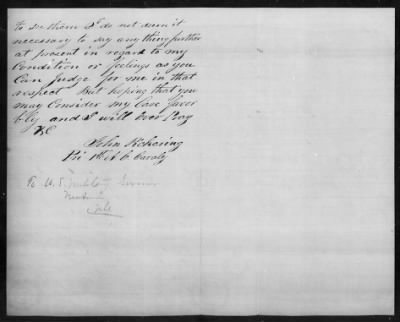 to se them I do not deem it
necessary to say any thing further
at present in regard to my
Condition or feelings as you
Can Judge for me in that
respect but hoping that you
may Consider my Case favor
bly and I will Ever Pray
&C
John
Pri 1st C Cavaly
To U. S. Military